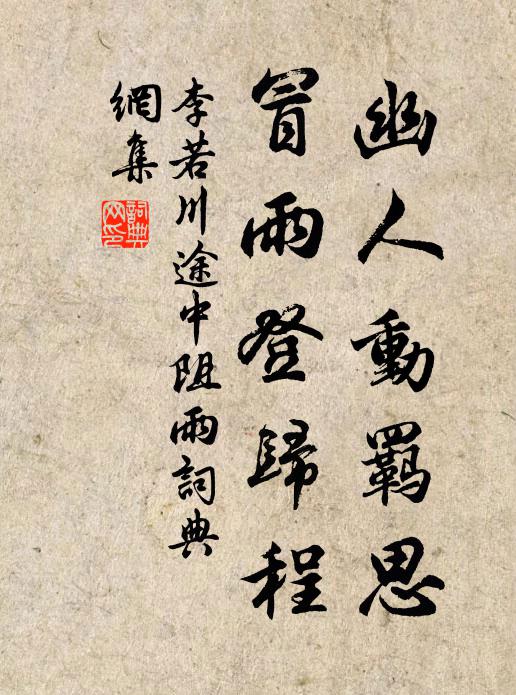 幽人動羈思
冒雨登歸程
李若川途中阻雨詞典
網集
詞典
网印